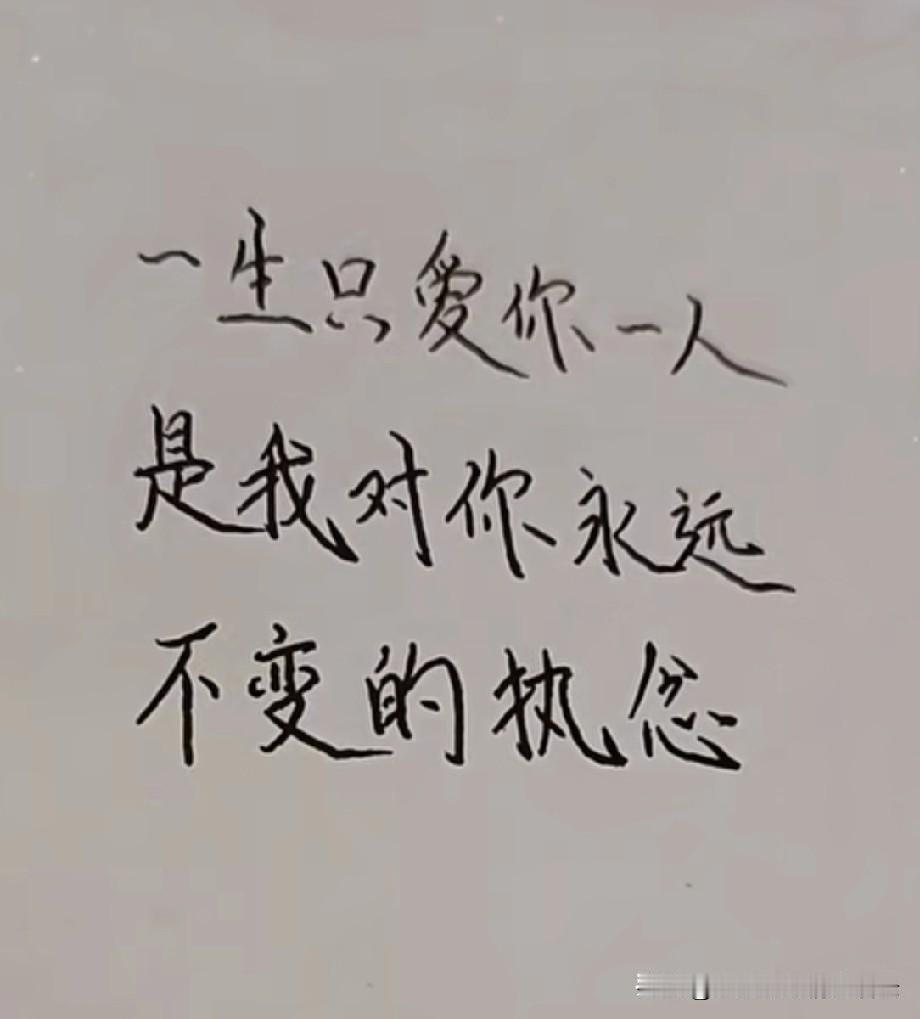 一生只愛你一人
是我对你永远
不变的执念